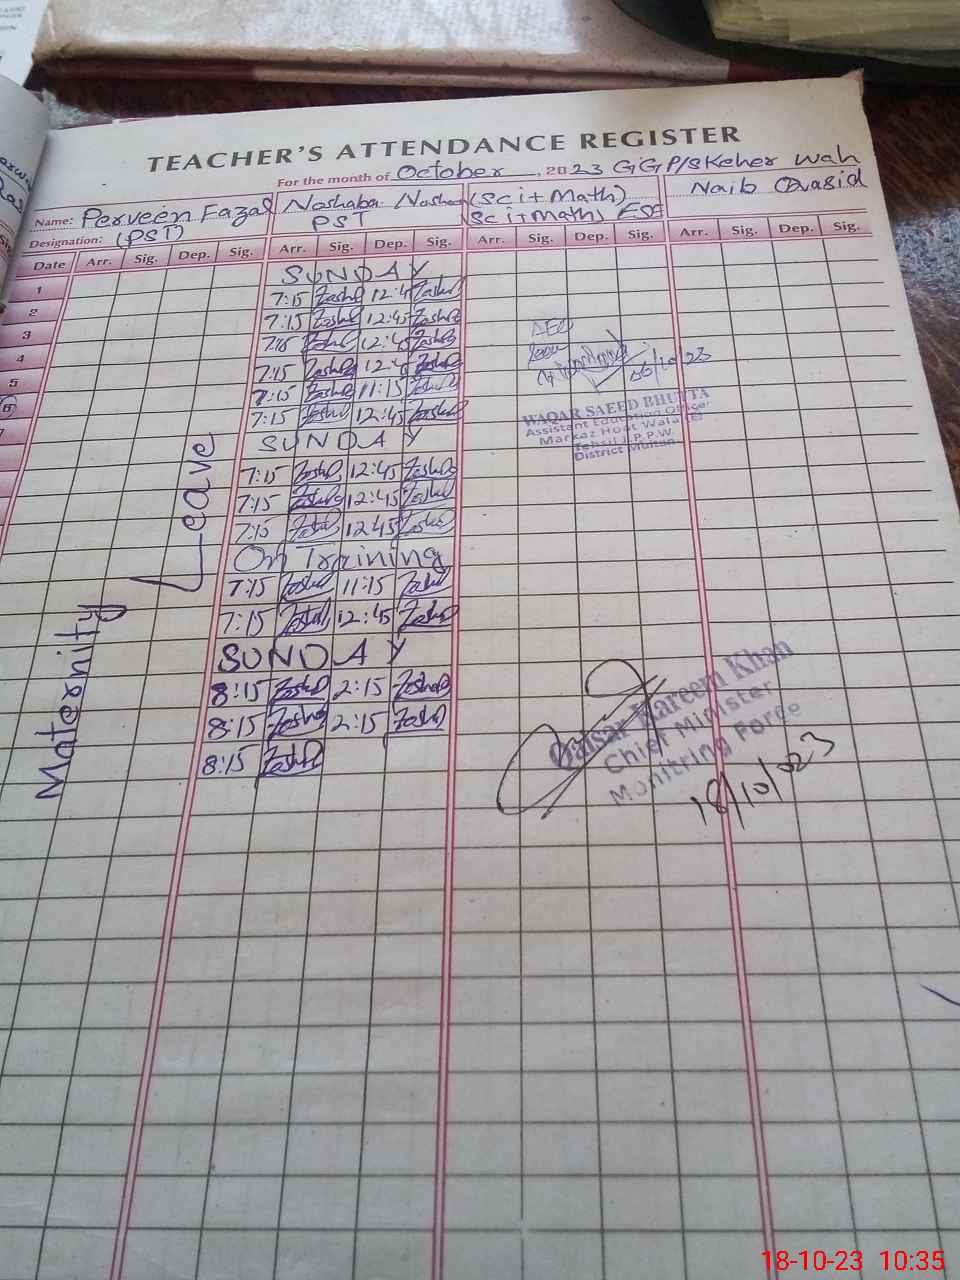 TEACHER'S ATTENDANCE REGISTER
For the month of October, 2023 GGP/S Keher Wah
Name: Perveen Fazal Noshaba (Sci+Math) Naib Qasid
Designation: (PST) PST (Sci+Math) ESE
Date Arr. Sig. Dep. Sig. Arr. Sig. Dep. Sig. Arr. Sig. Dep. Sig. Arr. Sig. Dep. Sig.
1 SUNDAY
2 7:15 12:4
3 7:15 12:45
4 7:15 12:4
5 7:15 12:4
6 7:15 11:15
7 7:15 12:45
SUNDAY
7:15 12:45
7:15 12:45
7:15 12:45
On Training
7:15 11:15
7:15 12:45
SUNDAY
8:15 2:15
8:15 2:15
8:15
Maternity Leave
AEO
06/10/23
WAQAR SAEED BHUTTA
Assistant Education Officer
Markaz Hoat Wala
Tehsil J.P.P.W.
District Multan
Qaisar Kareem Khan
Chief Minister
Monitring Force
18/10/023
18-10-23 10:35